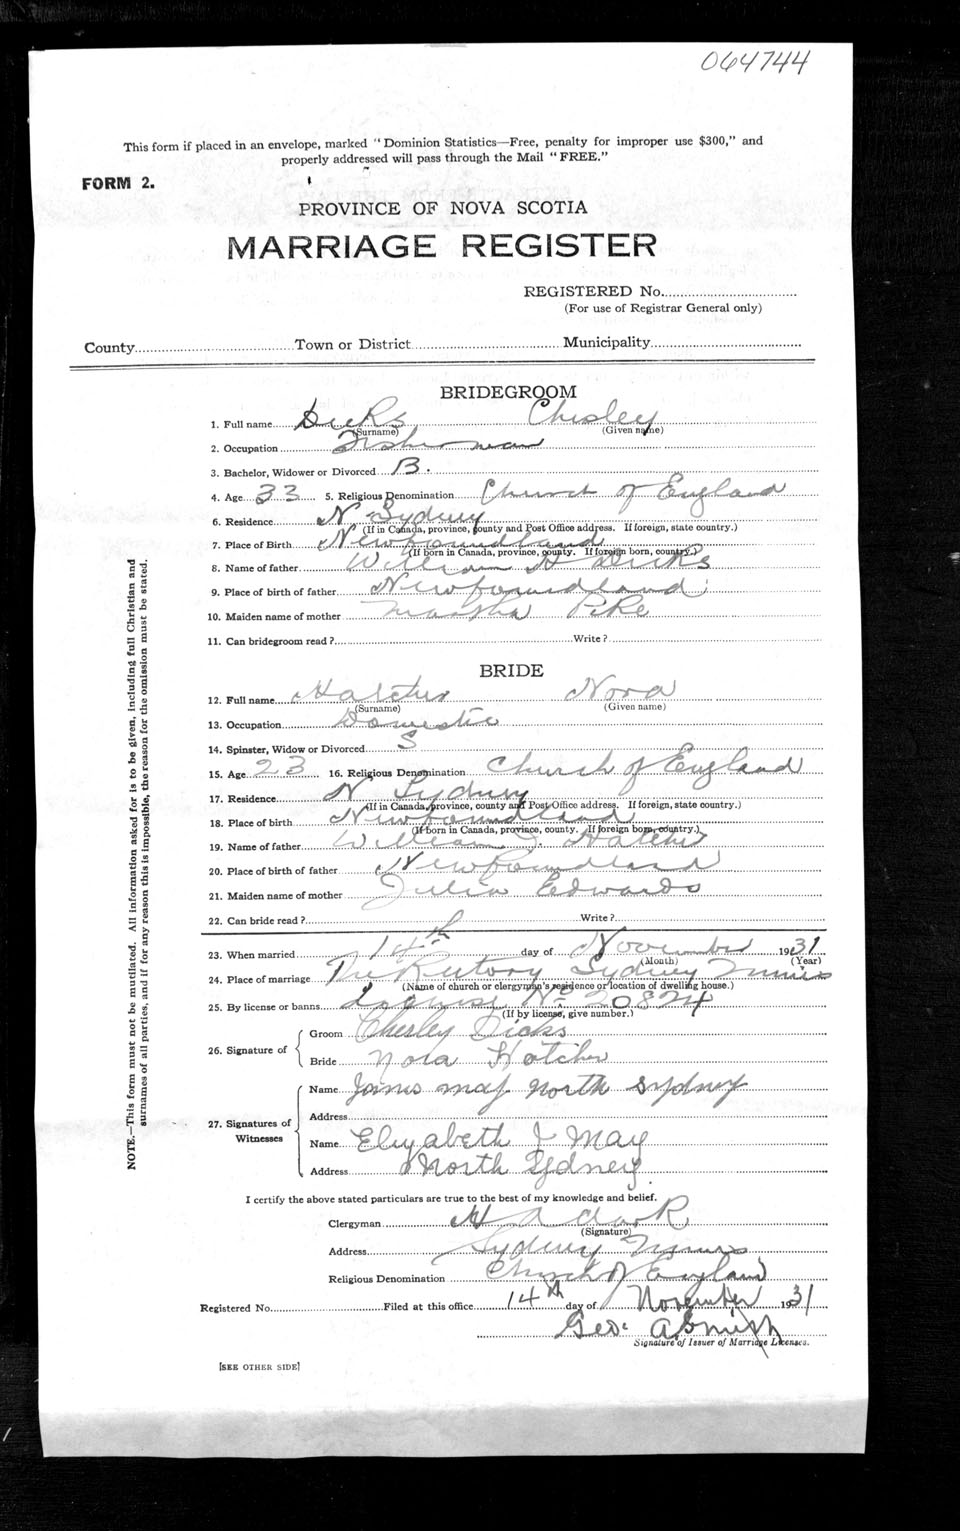 064744
This form if placed in an envelope, marked "Dominion Statistics—Free, penalty for improper use $300," and
properly addressed will pass through the Mail "FREE."
FORM 2.
PROVINCE OF NOVA SCOTIA
MARRIAGE REGISTER
REGISTERED No.
(For use of Registrar General only)
County Town or District Municipality
BRIDEGROOM
1. Full name Dicks Chesley
(Surname) (Given name)
2. Occupation Fisherman
3. Bachelor, Widower or Divorced B.
4. Age 33 5. Religious Denomination Church of England
6. Residence N Sydney
(If in Canada, province, county and Post Office address. If foreign, state country.)
7. Place of Birth Newfoundland
(If born in Canada, province, county. If foreign born, country.)
8. Name of father William H Dicks
9. Place of birth of father Newfoundland
10. Maiden name of mother Martha Pike
11. Can bridegroom read? Write?
BRIDE
12. Full name Hatcher Nora
(Surname) (Given name)
13. Occupation Domestic
14. Spinster, Widow or Divorced S
15. Age 23 16. Religious Denomination Church of England
17. Residence N Sydney
(If in Canada, province, county and Post Office address. If foreign, state country.)
18. Place of birth Newfoundland
(If born in Canada, province, county. If foreign born, country.)
19. Name of father William J. Hatcher
20. Place of birth of father Newfoundland
21. Maiden name of mother Julia Edwards
22. Can bride read? Write?
23. When married 14th day of November 1931
(Month) (Year)
24. Place of marriage The Rectory Sydney Mines
(Name of church or clergyman's residence or location of dwelling house.)
25. By license or banns License No 20824
(If by license, give number.)
26. Signature of
Groom Chesley Dicks
Bride Nora Hatcher
27. Signatures of Witnesses
Name James May North Sydney
Address
Name Elizabeth J May
Address North Sydney
I certify the above stated particulars are true to the best of my knowledge and belief.
Clergyman H A Clark
(Signature)
Address Sydney Mines
Religious Denomination Church of England
Registered No. Filed at this office 14th day of November 1931
Geo.
Signature of Issuer of Marriage Licenses.
[SEE OTHER SIDE]
NOTE.—This form must not be mutilated. All information asked for is to be given, including full Christian and
surnames of all parties, and if for any reason this is impossible, the reason for the omission must be stated.